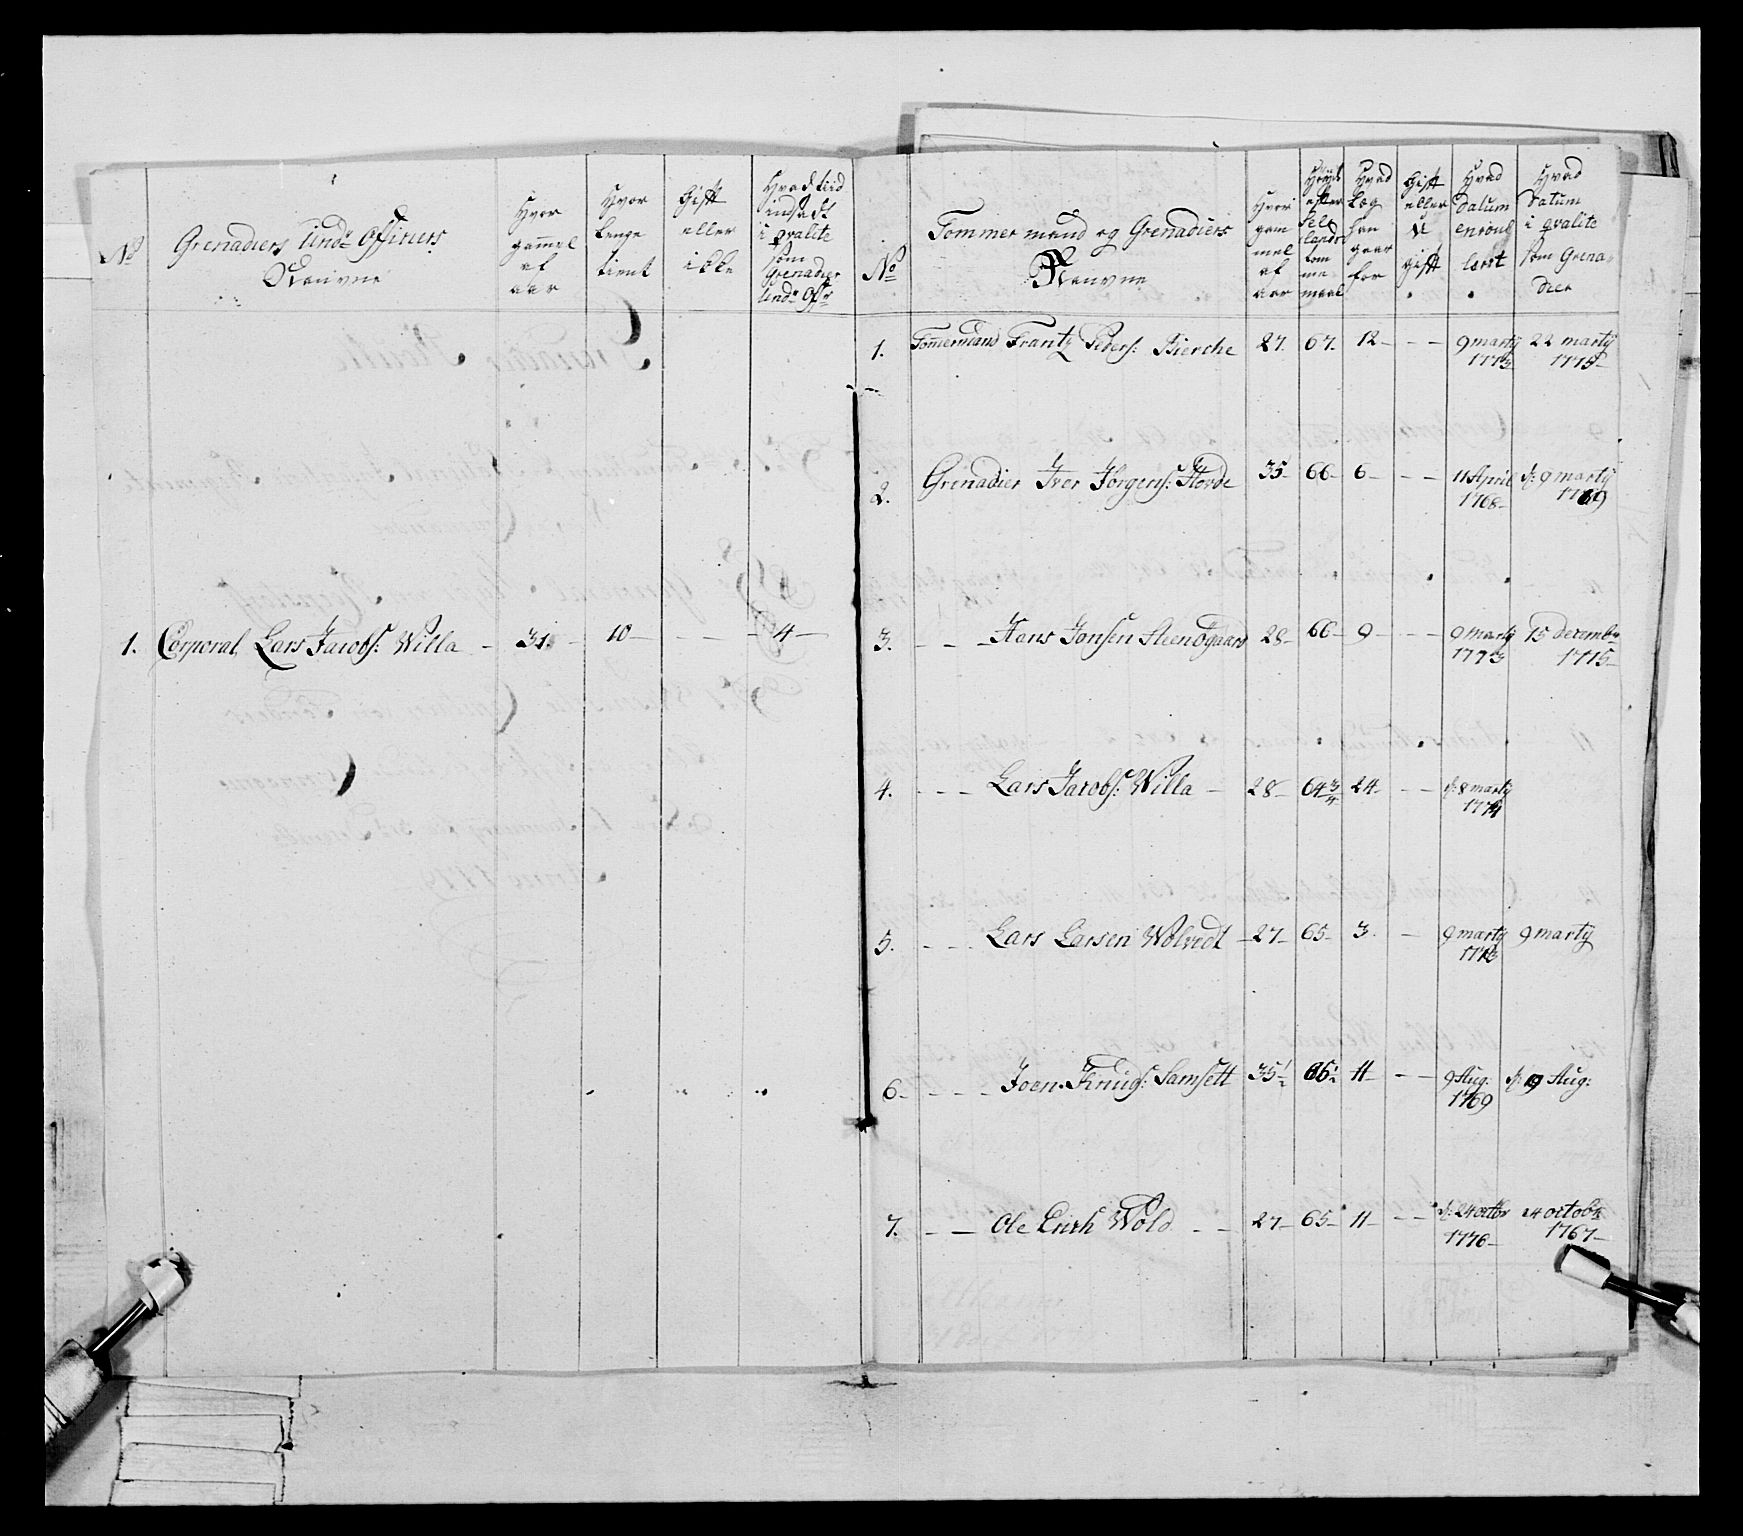 No
Grenadiers Undr Officiers
Neuvne
Hvor
gammel
af
aar
Hvor
lenge
tient
Gift
eller
ikke
Hvad tiid
indsadt
i qvalite
som
Grenadier
Undr Offr
1. Corporal Lars Jacobs: Willa - 31. - 10 - - - - 4 -
No
Tommermænd og Grenadiers
Neuvne
Hvor
gam
mel
af
aar
Høyde
efter
Sel
lands
tom
me
maal
Hvad
Læg
han
gaar
for
Gift
eller
U
gift
Hvad
datum
enroul
lerct
Hvad
Datum
i qvalite
som Grena-
dier
1. Tommermand Frantz Peders: Bierche 27. 67. 12 - - - 9 marty 22 marty
1773 1775
2. Grenadier Iver Jørgens: Hovde 35 66 6 - - - 11 April d: 9 marty
1768 1769
3. - - - Hans Jonsen Steensgaard 28 66 9 - - - 9 marty 15 decembr
1773 1775
4. - - - Lars Jacobs: Willa - 28 64 3/4 24 - - d: 8 marty
1774
5. - - - Lars Larsen Wolredt - 27 65 3 - 9 marty 9 marty
1773
6. - - - Joen Knuds: Samsett 35 1/2 65 1/2 11 - - - 9 Aug: d: 9 Aug:
1769
7. - - Ole Erich Wold - - 27 65 11 - - - d: 24 octbr 24 octobr
1776 1767